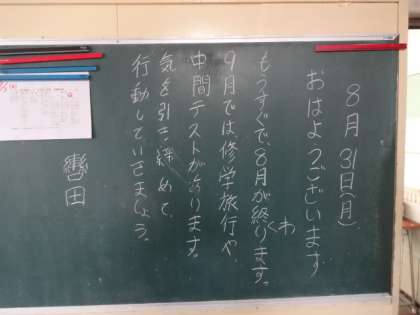 8月31日(月)
おはようございます
もうすぐで、8月が終わります。
9月では、修学旅行や
中間テストがあります。
気を引き締めて、
行動していきましょう。
轡田